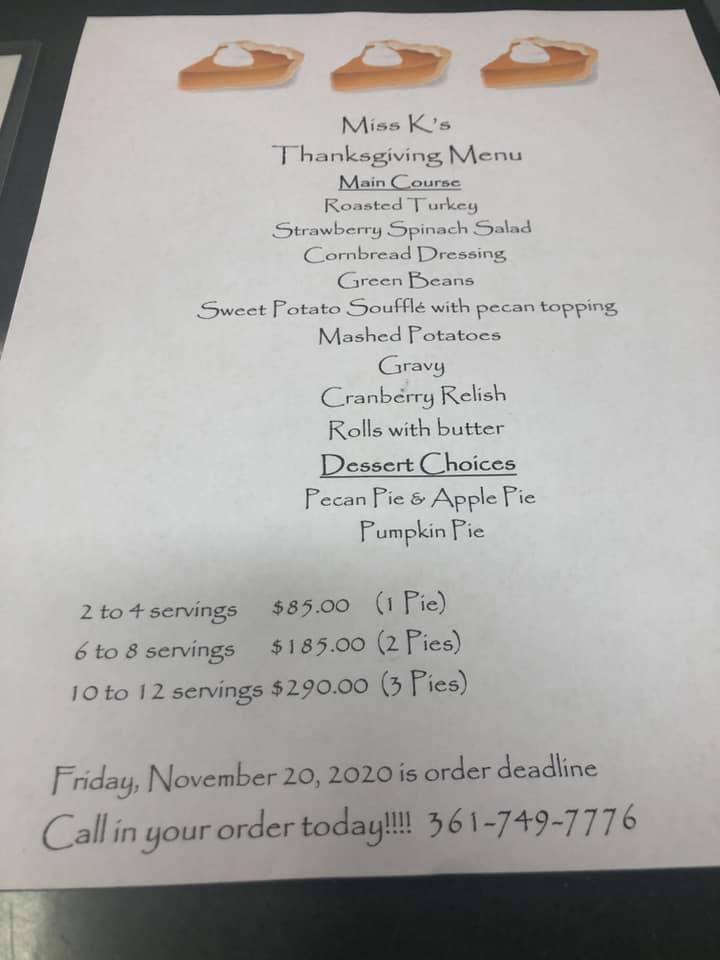 Miss K's
Thanksgiving Menu
Main Course
Roasted Turkey
Strawberry Spinach Salad
Cornbread Dressing
Green Beans
Sweet Potato Soufflé with pecan topping
Mashed Potatoes
Gravy
Cranberry Relish
Rolls with butter
Dessert Choices
Pecan Pie & Apple Pie
Pumpkin Pie
2 to 4 servings $85.00 (1 Pie)
6 to 8 servings $185.00 (2 Pies)
10 to 12 servings $290.00 (3 Pies)
Friday, November 20, 2020 is order deadline
Call in your order today!!!! 361-749-7776